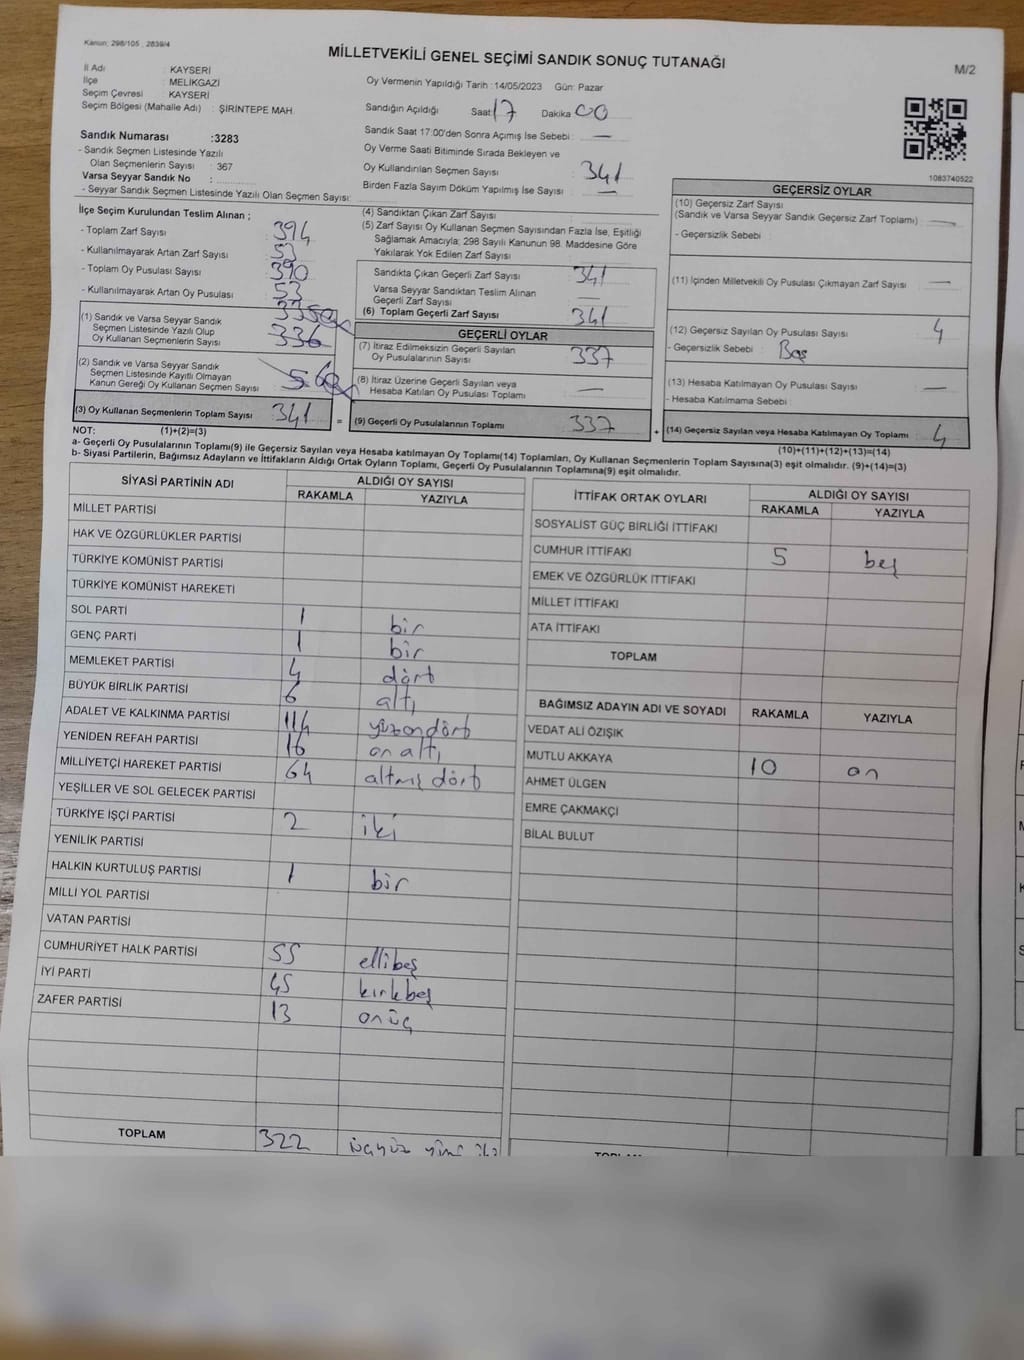 Kanun; 298/105 , 2839/4
MİLLETVEKİLİ GENEL SEÇİMİ SANDIK SONUÇ TUTANAĞI
M/2
İl Adı : KAYSERİ
İlçe : MELİKGAZİ
Seçim Çevresi : KAYSERİ
Seçim Bölgesi (Mahalle Adı) : ŞİRİNTEPE MAH.
Oy Vermenin Yapıldığı Tarih : 14/05/2023 Gün: Pazar
Sandığın Açıldığı Saat 17 Dakika 00
Sandık Saat 17:00'den Sonra Açmış İse Sebebi : —
Oy Verme Saati Bitiminde Sırada Bekleyen ve
Oy Kullandırılan Seçmen Sayısı 341
Birden Fazla Sayım Döküm Yapılmış İse Sayısı —
Sandık Numarası :3283
- Sandık Seçmen Listesinde Yazılı
Olan Seçmenlerin Sayısı : 367
Varsa Seyyar Sandık No :
- Seyyar Sandık Seçmen Listesinde Yazılı Olan Seçmen Sayısı:
1083740522
İlçe Seçim Kurulundan Teslim Alınan ;
- Toplam Zarf Sayısı : 394
- Kullanılmayarak Artan Zarf Sayısı : 53
- Toplam Oy Pusulası Sayısı : 390
- Kullanılmayarak Artan Oy Pusulası : 53
(1) Sandık ve Varsa Seyyar Sandık
Seçmen Listesinde Yazılı Olup
Oy Kullanan Seçmenlerin Sayısı : 336
(2) Sandık ve Varsa Seyyar Sandık
Seçmen Listesinde Kayıtlı Olmayan
Kanun Gereği Oy Kullanan Seçmen Sayısı : 5
(3) Oy Kullanan Seçmenlerin Toplam Sayısı : 341
(4) Sandıktan Çıkan Zarf Sayısı :
(5) Zarf Sayısı Oy Kullanan Seçmen Sayısından Fazla İse, Eşitliği
Sağlamak Amacıyla; 298 Sayılı Kanunun 98. Maddesine Göre
Yakılarak Yok Edilen Zarf Sayısı :
Sandıkta Çıkan Geçerli Zarf Sayısı : 341
Varsa Seyyar Sandıktan Teslim Alınan
Geçerli Zarf Sayısı : —
(6) Toplam Geçerli Zarf Sayısı : 341
GEÇERLİ OYLAR
(7) İtiraz Edilmeksizin Geçerli Sayılan
Oy Pusulalarının Sayısı : 337
(8) İtiraz Üzerine Geçerli Sayılan veya
Hesaba Katılan Oy Pusulası Toplamı : —
= (9) Geçerli Oy Pusulalarının Toplamı : 337
GEÇERSİZ OYLAR
(10) Geçersiz Zarf Sayısı
(Sandık ve Varsa Seyyar Sandık Geçersiz Zarf Toplamı) : —
- Geçersizlik Sebebi :
(11) İçinden Milletvekili Oy Pusulası Çıkmayan Zarf Sayısı : —
(12) Geçersiz Sayılan Oy Pusulası Sayısı : 4
- Geçersizlik Sebebi : Boş
(13) Hesaba Katılmayan Oy Pusulası Sayısı : —
- Hesaba Katılmama Sebebi :
+ (14) Geçersiz Sayılan veya Hesaba Katılmayan Oy Toplamı : 4
NOT: (1)+(2)=(3)
(10)+(11)+(12)+(13)=(14)
a- Geçerli Oy Pusulalarının Toplamı(9) ile Geçersiz Sayılan veya Hesaba katılmayan Oy Toplamı(14) Toplamları, Oy Kullanan Seçmenlerin Toplam Sayısına(3) eşit olmalıdır. (9)+(14)=(3)
b- Siyasi Partilerin, Bağımsız Adayların ve İttifakların Aldığı Ortak Oyların Toplamı, Geçerli Oy Pusulalarının Toplamına(9) eşit olmalıdır.
SİYASİ PARTİNİN ADI ALDIĞI OY SAYISI
RAKAMLA YAZIYLA
MİLLET PARTİSİ
HAK VE ÖZGÜRLÜKLER PARTİSİ
TÜRKİYE KOMÜNİST PARTİSİ
TÜRKİYE KOMÜNİST HAREKETİ
SOL PARTİ 1 bir
GENÇ PARTİ 1 bir
MEMLEKET PARTİSİ 4 dört
BÜYÜK BİRLİK PARTİSİ 6 altı
ADALET VE KALKINMA PARTİSİ 114 yüzondört
YENİDEN REFAH PARTİSİ 16 on altı
MİLLİYETÇİ HAREKET PARTİSİ 64 altmış dört
YEŞİLLER VE SOL GELECEK PARTİSİ
TÜRKİYE İŞÇİ PARTİSİ 2 iki
YENİLİK PARTİSİ
HALKIN KURTULUŞ PARTİSİ 1 bir
MİLLİ YOL PARTİSİ
VATAN PARTİSİ
CUMHURİYET HALK PARTİSİ 55 ellibeş
İYİ PARTİ 45 kırkbeş
ZAFER PARTİSİ 13 onüç
TOPLAM 322
İTTİFAK ORTAK OYLARI ALDIĞI OY SAYISI
RAKAMLA YAZIYLA
SOSYALİST GÜÇ BİRLİĞİ İTTİFAKI
CUMHUR İTTİFAKI 5 beş
EMEK VE ÖZGÜRLÜK İTTİFAKI
MİLLET İTTİFAKI
ATA İTTİFAKI
TOPLAM
BAĞIMSIZ ADAYIN ADI VE SOYADI RAKAMLA YAZIYLA
VEDAT ALİ ÖZIŞIK
MUTLU AKKAYA 10 on
AHMET ÜLGEN
EMRE ÇAKMAKÇI
BİLAL BULUT